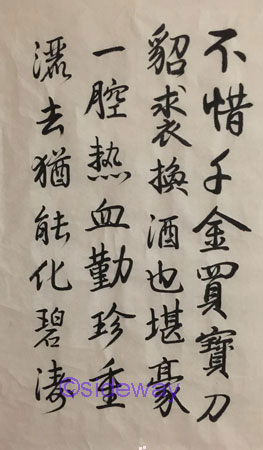 不惜千金買寶刀
貂裘換酒也堪豪
一腔熱血勤珍重
灑去猶能化碧濤
©sideway